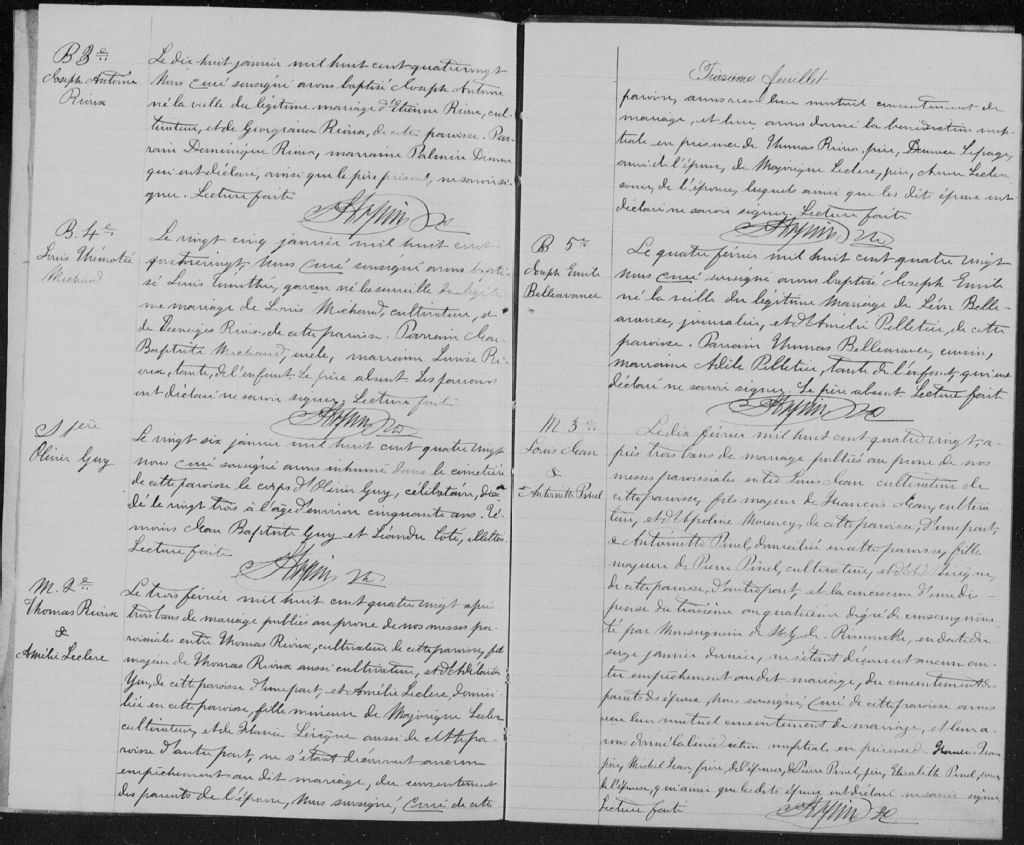 B 3e
Joseph Antoine
Rioux
Le dix huit janvier mil huit cent quatre vingt
Nous curé soussigné avons baptisé Joseph Antoine
né la veille du légitime mariage d'Etienne Rioux, cul-
tivateur, et de Georgianna Rioux, de cette paroisse. Par-
rain Dominique Rioux, marraine Palmire
qui ont déclaré, ainsi que le père présent, ne savoir si-
gner. Lecture faite
B. 4e
Louis Thimotée
Michaud
Le vingt cinq janvier mil huit cent
quatre vingt, Nous curé soussigné avons bapti-
sé Louis Timothée, garçon né la surveille du légiti-
me mariage de Louis Michaud, cultivateur, et
de Desneiges Rioux, de cette paroisse. Parrain Jean
Baptiste Michaud, oncle, marraine Louise Ri-
oux, tante, de l'enfant. Le père absent. Les parrains
ont déclaré ne savoir signer, Lecture faite
S 1ère
Olivier Guy
Le vingt six janvier mil huit cent quatre vingt
nous curé soussigné avons inhumé dans le cimetière
de cette paroisse le corps d'Olivier Guy, célibataire, décé-
dé le vingt trois à l'âge d'environ cinquante ans. Té-
moins Jean Baptiste Guy et Léandre Coté, illettrés
Lecture faite
M. 2e
Thomas Rioux
&
Amélie Leclerc
Le trois février mil huit cent quatre vingt après
trois bans de mariage publiés au prone de nos messes pa-
roissiales entre Thomas Rioux, cultivateur de cette paroisse, fils
majeur de Thomas Rioux aussi cultivateur, et d'Adelaide
de cette paroisse d'une part, et Amélie Leclerc, domici-
liée en cette paroisse, fille mineure de Majorique Leclerc
cultivateur, et de Flavie Lévêque aussi de cette pa-
roisse d'autre part, ne s'étant découvert aucun
empêchement au dit mariage, du consentement
des parents de l'épouse, Nous soussigné, Curé de cette
Troisième feuillet
paroisse, avons reçu leur mutuel consentement de
mariage, et leur avons donné la bénédiction nup-
tiale en présence de Thomas Rioux, père, Lepage,
ami de l'époux, de Majorique Leclerc, père, Leclerc
soeur, de l'épouse, lesquels ainsi que les dits époux ont
déclaré ne savoir signer. Lecture faite
B 5e
Joseph Emile
Belleavance
Le quatre février mil huit cent quatre vingt
Nous curé soussigné avons baptisé Joseph Emile
né la veille du légitime mariage de Léon Belle-
avance, journalier, et d'Amélie Pelletier, de cette
paroisse. Parrain Thomas Belleavance, cousin,
marraine Adèle Pelletier, tante de l'enfant, qui ont
déclaré ne savoir signer. Le père absent. Lecture faite
M 3e
Louis Jean
&
Antoinette Pinel
Le dix février mil huit cent quatre vingt, a-
près trois bans de mariage publiés au prone de nos
messes paroissiales entre Louis Jean cultivateur de
cette paroisse, fils majeur de Francois Jean, cultiva-
teur, et d'Appoline de cette paroisse, d'une part,
& Antoinette Pinel, domiciliée en cette paroisse, fille
majeure de Pierre Pinel, cultivateur, et Lévêque,
de cette paroisse, d'autre part, et la concession d'une dis-
pense du troisième au quatrième dégré de consanguini-
té par Monseigneur de Rimouski, en date du
seize janvier dernier, ne s'étant découvert aucun au-
tre empêchement au dit mariage, du consentement des
parents des époux, Nous soussigné, Curé de cette paroisse avons
reçu leur mutuel consentement de mariage, et leur a-
vons donné la bénédiction nuptiale en présence de Francois Jean
père, Michel Jean, frère, de l'époux, & Pierre Pinel, père, Elisabeth Pinel, soeur
de l'épouse, qui ainsi que les dits époux ont déclaré ne savoir signer
Lecture faite